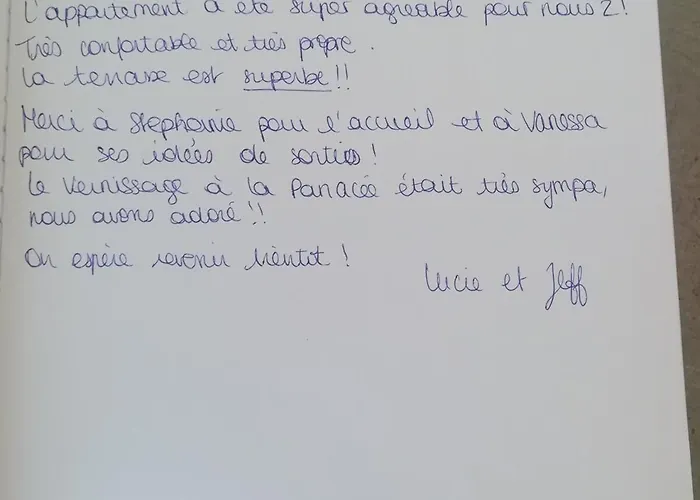 L'appartement a été super agréable pour nous 2!
Très confortable et très propre.
La terrasse est superbe!!
Merci à Stephanie pour l'accueil et à Vanessa
pour ses idées de sorties!
Le Vernissage à la Panacée était très sympa,
nous avons adoré!!
On espère revenir bientôt!
Lucie et Jeff